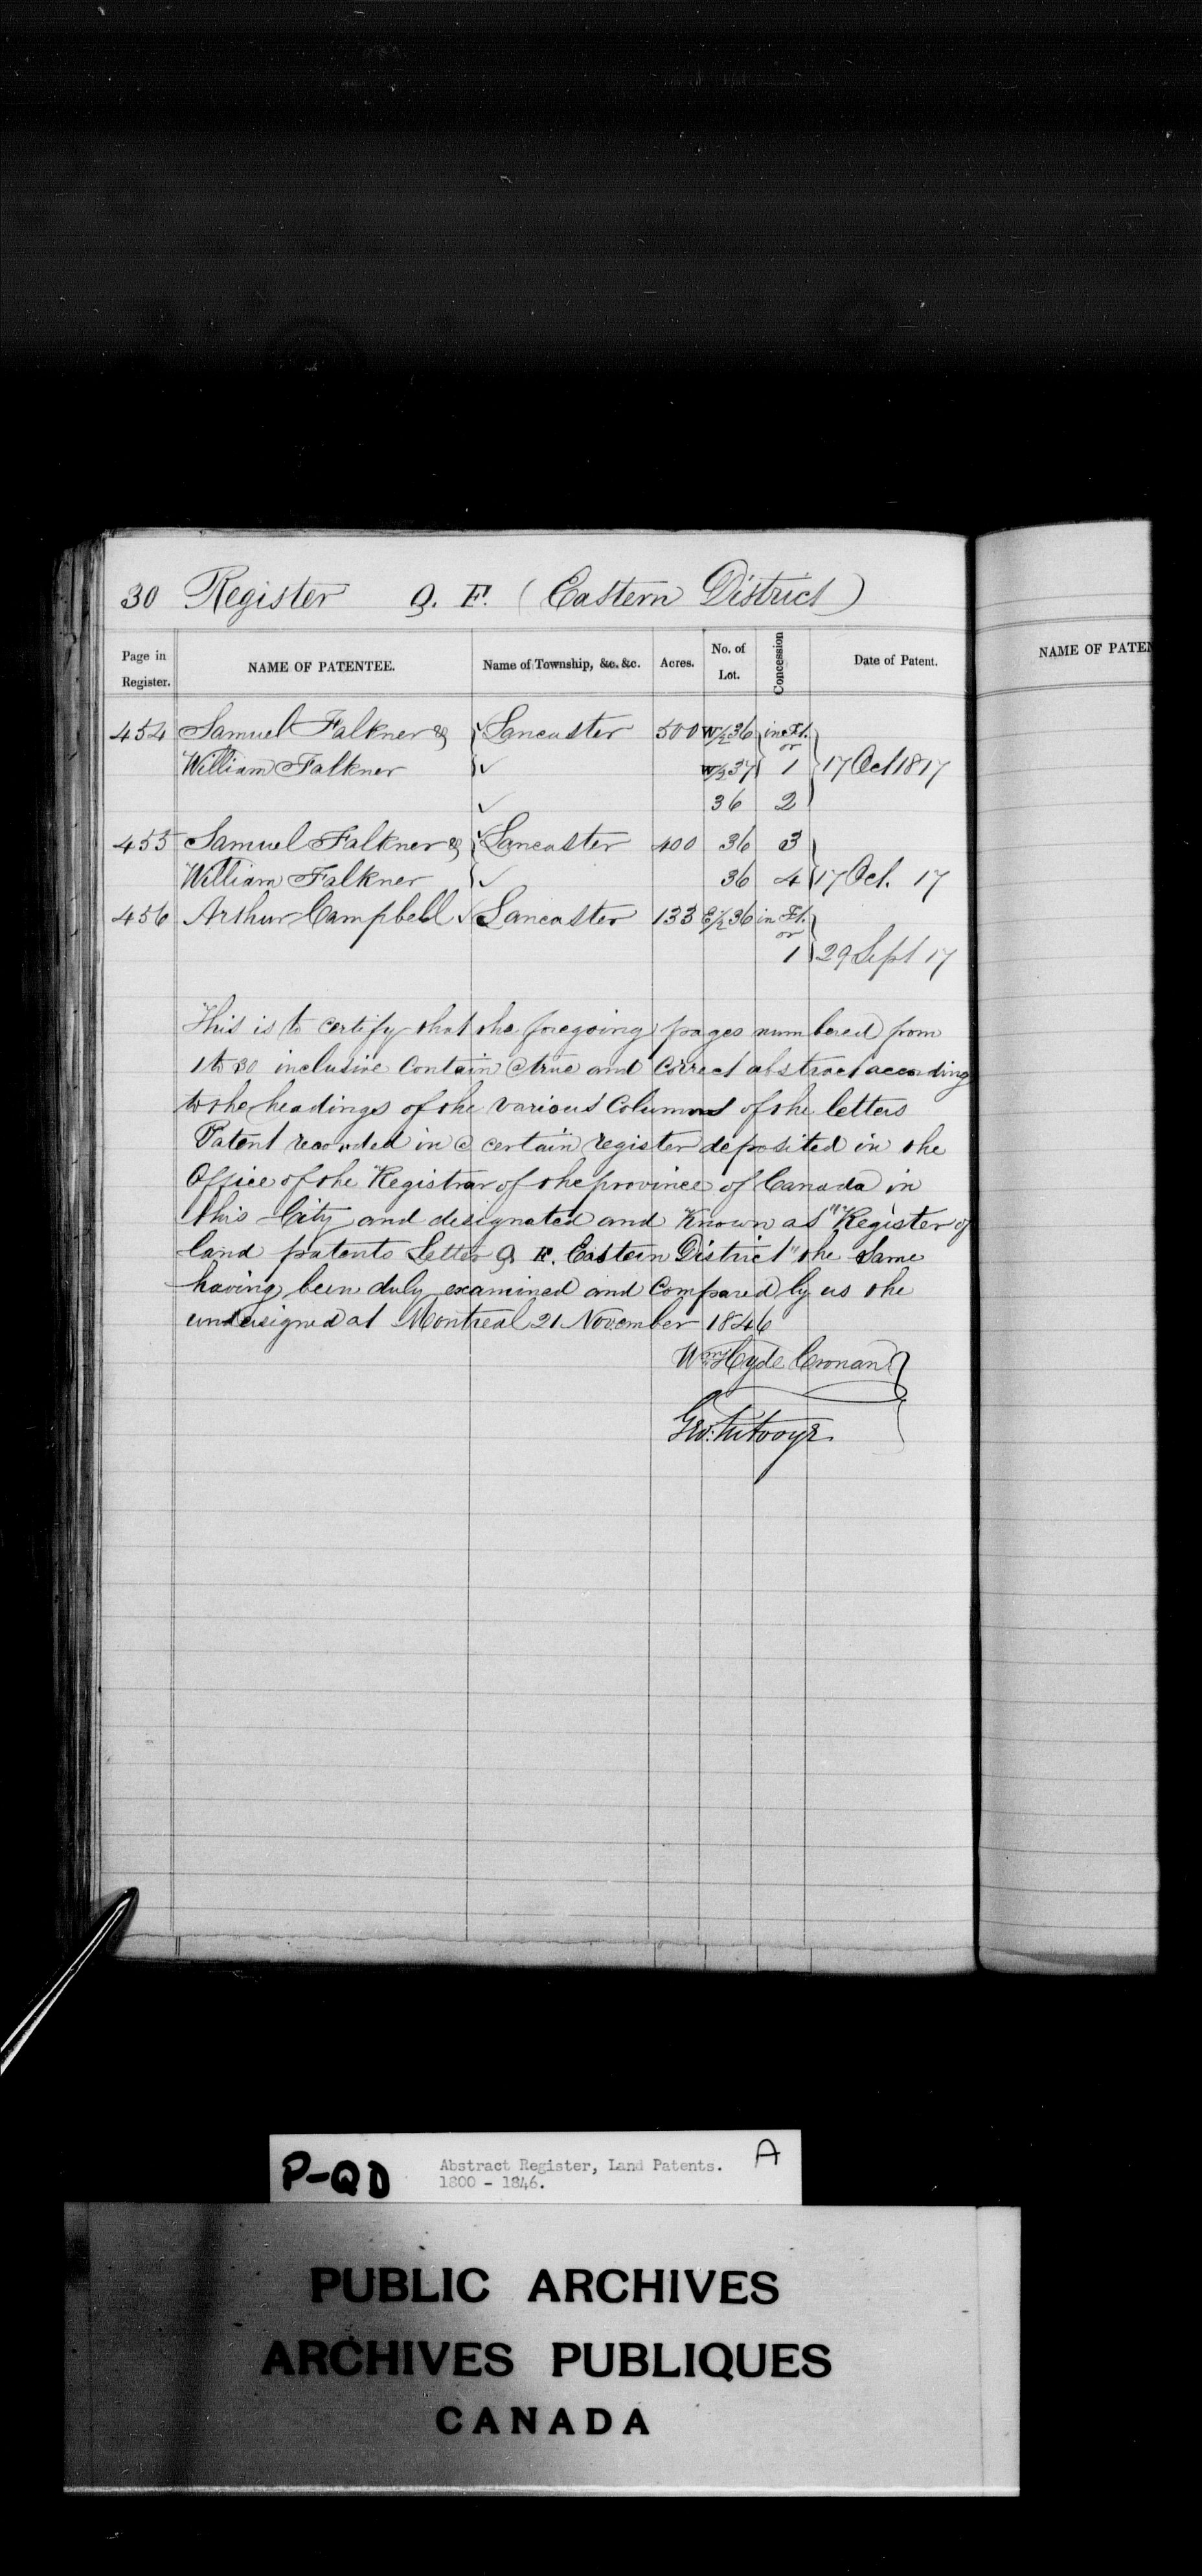 30 Register G. F. (Eastern District)
Page in Register. NAME OF PATENTEE. Name of Township, &c. &c. Acres. No. of Lot. Concession Date of Patent.
NAME OF PATEN
454 Samuel Falkner & Lancaster 500 W½ 36 in Ft. or
William Falkner W½ 37 1 17 Oct 1817
36 2
455 Samuel Falkner & Lancaster 400 36 3
William Falkner 36 4 17 Oct. 17
456 Arthur Campbell Lancaster 133 E½ 36 in Ft. or
1 29 Sept 17
This is to certify that the foregoing pages numbered from
1 to 30 inclusive Contain a true and Correct abstract according
to the headings of the various Columns of the letters
Patent recorded in a certain register deposited in the
Office of the Registrar of the province of Canada in
this City and designated and Known as "Register of
land patents Letter G. F. Eastern District" the Same
having been duly examined and Compared by us the
undersigned at Montreal 21 November 1846
Wm Hyde Cronan
Geo:
P-QD Abstract Register, Land Patents. A
1800 - 1846.
PUBLIC ARCHIVES
ARCHIVES PUBLIQUES
CANADA